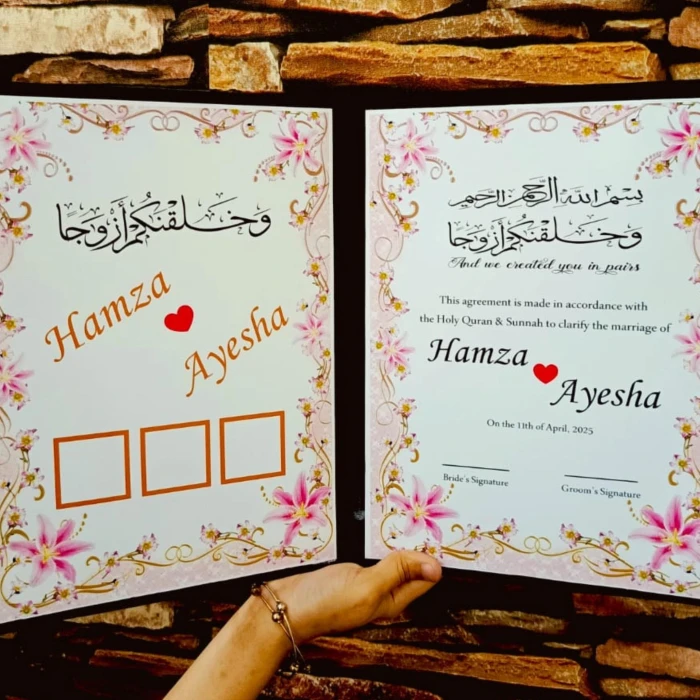 وَخَلَقْنَكُمْ أَزْوَجًا
Hamza
Ayesha
بسم الله الرحمن الرحيم
وَخَلَقْنَكُمْ أَزْوَجًا
And we created you in pairs
This agreement is made in accordance with
the Holy Quran & Sunnah to clarify the marriage of
Hamza
Ayesha
On the 11th of April, 2025
Bride's Signature
Groom's Signature